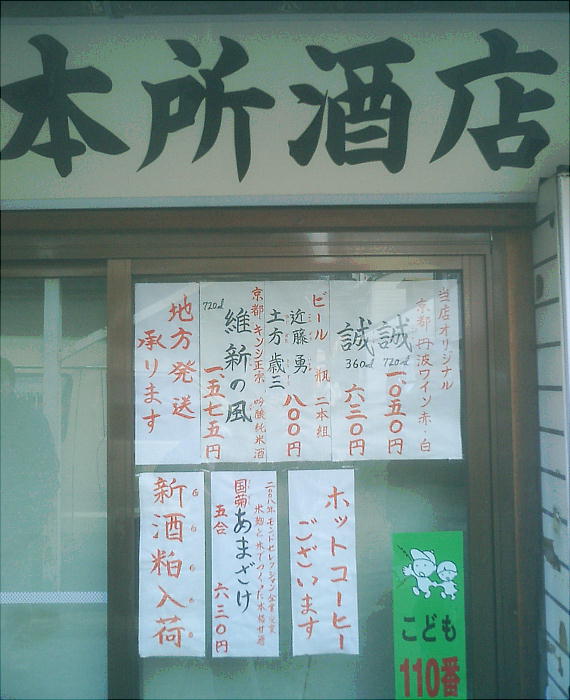 本所酒店
当店オリジナル
京都 丹波ワイン赤・白
誠
720ml
一、〇五〇円
誠
360ml
六三〇円
ビール 瓶 二本組
近藤勇
八〇〇円
土方歳三
京都 キンシ正宗 吟醸純米酒
維新の風
720ml
一、五七五円
地方発送
承ります
ホットコーヒー
ございます
二〇〇八年モンドセレクション金賞受賞
米麹と米でつくった本格甘酒
国菊あまざけ
五合
六三〇円
新酒粕入荷
こども
110番